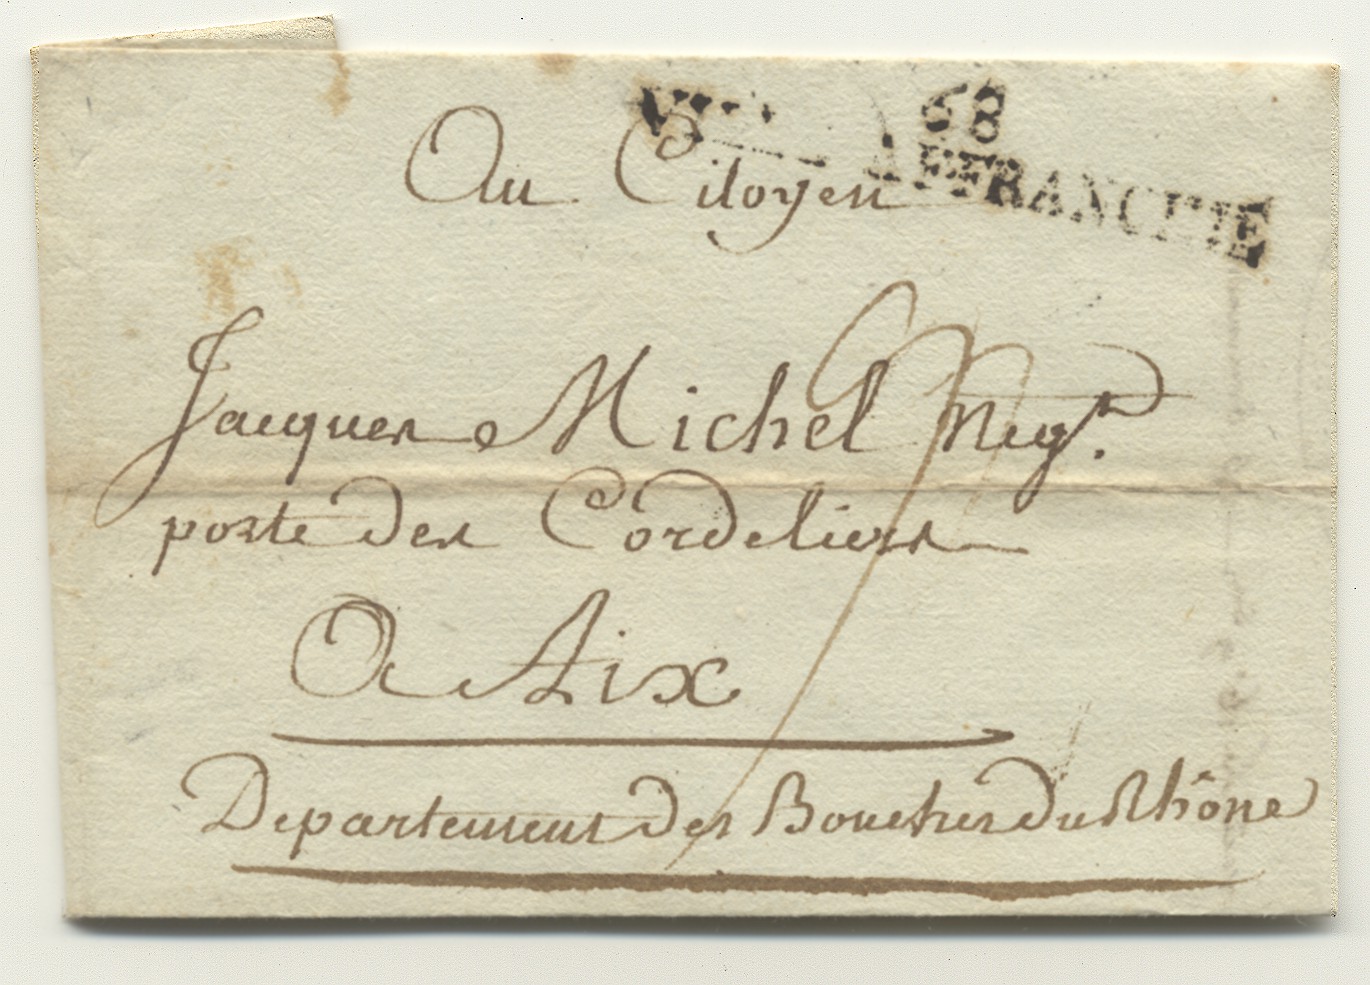 68
VILLE-AFFRANCHIE
Au Citoyen
Jacques Michel Neg.t
porte des Cordeliers
A Aix
Departement des Bouches du Rhône